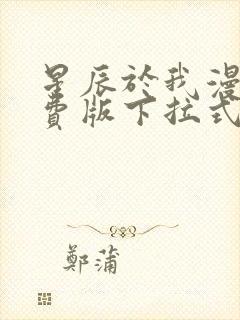 星辰於我漫
費版下拉式
鄭蒲